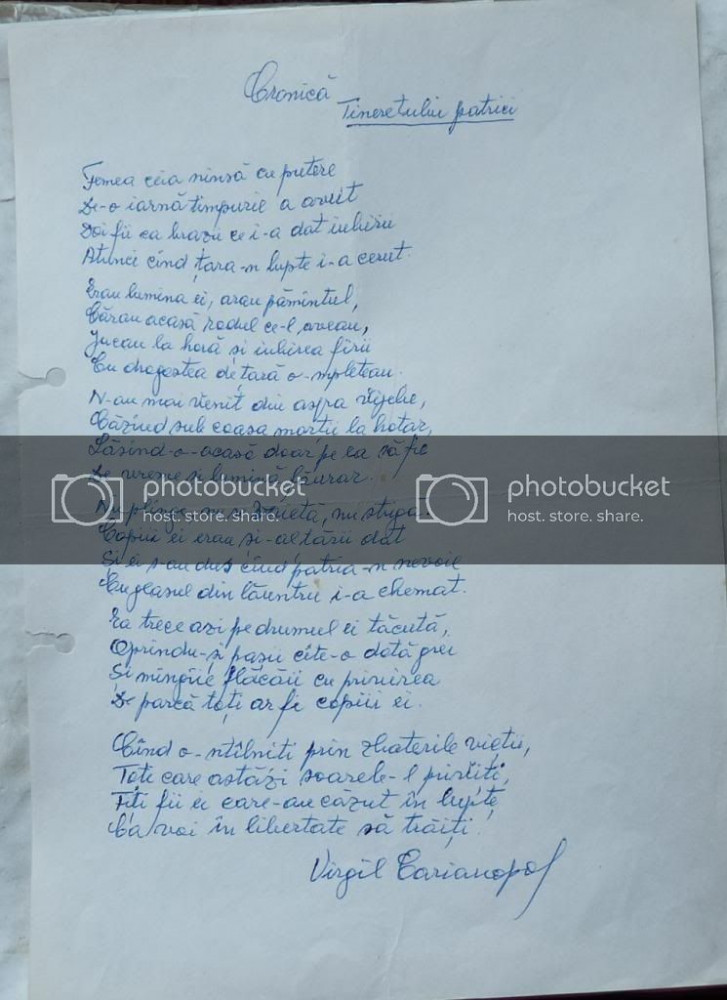 Cronică
Tineretului patriei
Femeea ceia ninsă cu putere
De-o iarnă timpurie a avut
Doi fii ca brazii ce i-a dat iubirii
Atunci cînd țara-n lupte i-a cerut.
Erau lumina ei, arau pămîntul,
Cărau acasă rodul ce-l aveau,
Jucau la horă și iubirea firii
Cu dragostea de țară o-mpleteau.
N-au mai venit din aspra vijelie,
Căzînd sub coasa morții la hotar,
Lăsînd-o acasă doar pe ea să fie
De vreme și lumină
Nu plînge, nu se vaietă, nu strigă.
Copiii ei erau și-altării dat
Și ei s-au dus cînd patria-n nevoie
Cu glasul din lăuntru i-a chemat.
Ea trece azi pe drumul ei tăcută,
Oprindu-și pașii cîte-o dată grei
Și mîngîie flăcăii cu privirea
De parcă toți ar fi copiii ei.
Cînd o-ntîlniți prin zbaterile vieții,
Toți care astăzi soarele-l priviți,
Fiți fii ei care-au căzut în lupte
Ca voi în libertate să trăiți.
Virgil Carianopol
photobucket
host. store. share.
photobucket
host. store. share.